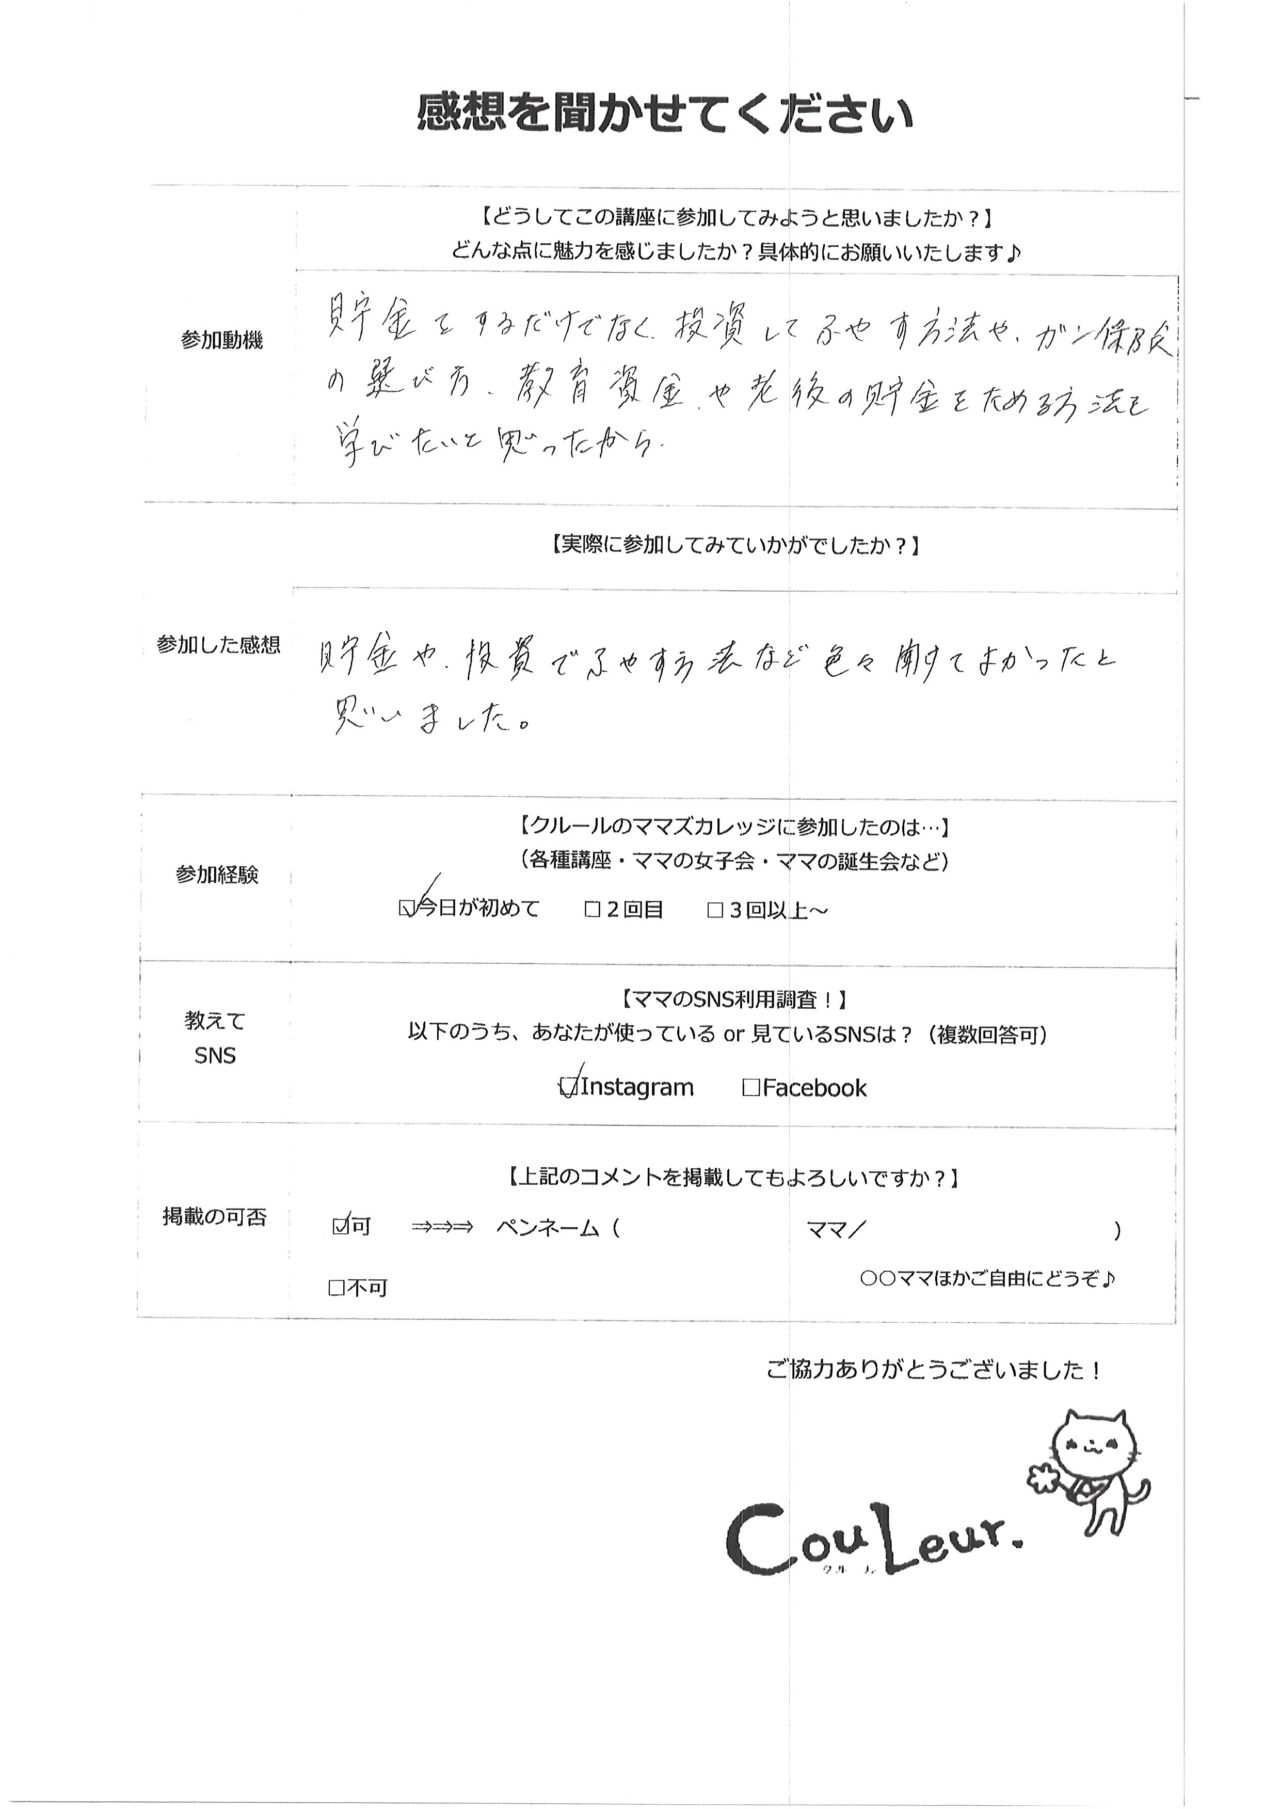 感想を聞かせてください
【どうしてこの講座に参加してみようと思いましたか？】
どんな点に魅力を感じましたか？具体的にお願いいたします♪
参加動機
貯金をするだけでなく、投資してふやす方法や、ガン保険
の選び方、教育資金や老後の貯金をためる方法を
学びたいと思ったから.
【実際に参加してみていかがでしたか？】
参加した感想
貯金や、投資でふやす方法など色々聞けてよかったと
思いました。
【クルールのママズカレッジに参加したのは…】
（各種講座・ママの女子会・ママの誕生会など）
参加経験
☑今日が初めて □２回目 □３回以上～
【ママのSNS利用調査！】
教えて
SNS
以下のうち、あなたが使っている or 見ているSNSは？（複数回答可）
☑Instagram □Facebook
【上記のコメントを掲載してもよろしいですか？】
掲載の可否
☑可 ⇒⇒⇒ ペンネーム（ ママ／ ）
○○ママほかご自由にどうぞ♪
□不可
ご協力ありがとうございました！
CouLeur.
クルール